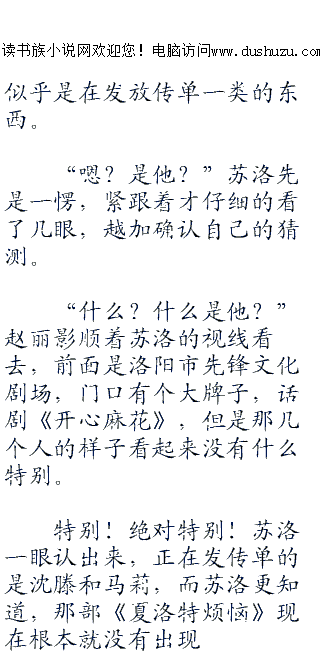 读书族小说网欢迎您！电脑访问www.dushuzu.com
似乎是在发放传单一类的东
西。
“嗯？是他？”苏洛先
是一愣，紧跟着才仔细的看
了几眼，越加确认自己的猜
测。
“什么？什么是他？”
赵丽影顺着苏洛的视线看
去，前面是洛阳市先锋文化
剧场，门口有个大牌子，话
剧《开心麻花》，但是那几
个人的样子看起来没有什么
特别。
特别！绝对特别！苏洛
一眼认出来，正在发传单的
是沈滕和马莉，而苏洛更知
道，那部《夏洛特烦恼》现
在根本就没有出现